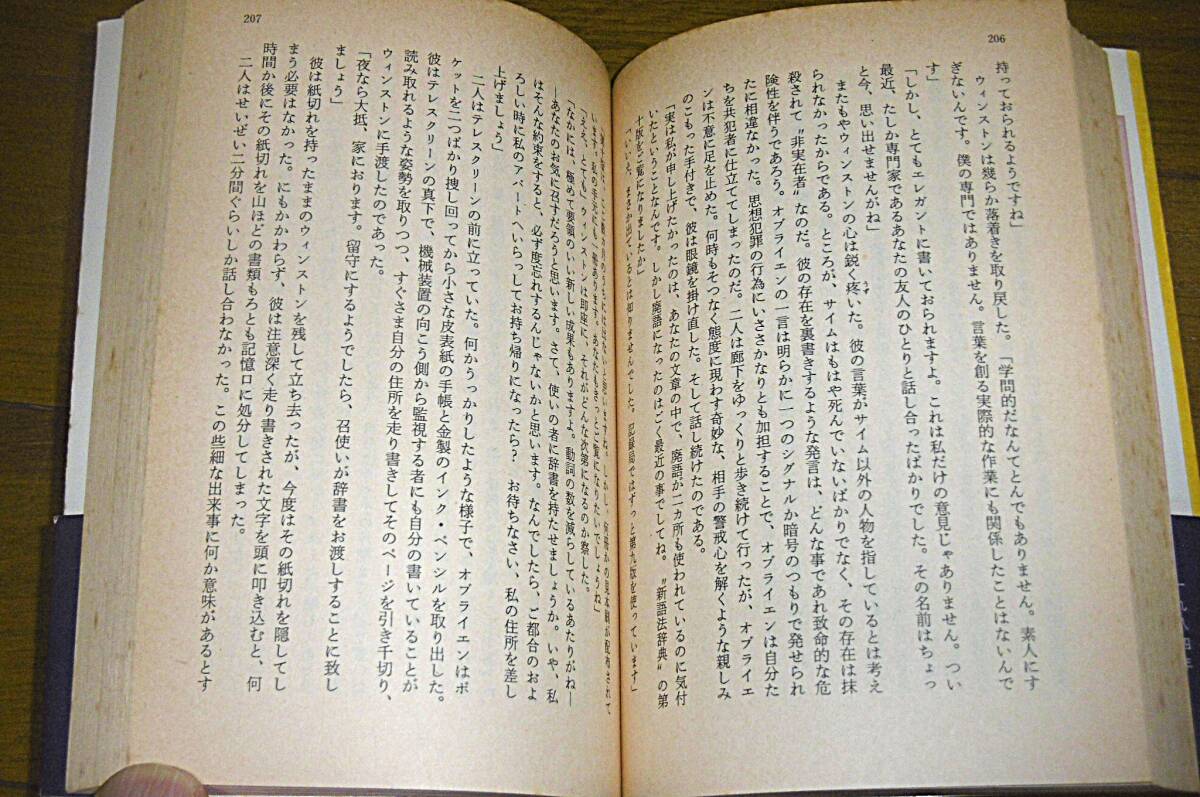 206
持っておられるようですね」
ウィンストンは幾らか落着きを取り戻した。「学問的だなんてとんでもありません。素人にす
ぎないんです。僕の専門ではありません。言葉を創る実際的な作業にも関係したことはないんで
す」
「しかし、とてもエレガントに書いておられますよ。これは私だけの意見じゃありません。つい
最近、たしか専門家であるあなたの友人のひとりと話し合ったばかりでした。その名前はちょっ
と今、思い出せませんがね」
またもやウィンストンの心は鋭く疼いた。彼の言葉がサイム以外の人物を指しているとは考え
られなかったからである。ところが、サイムはもはや死んでいないばかりでなく、その存在は抹
殺されて〝非実在者〟なのだ。彼の存在を裏書きするような発言は、どんな事であれ致命的な危
険性を伴うであろう。オブライエンの一言は明らかに一つのシグナルか暗号のつもりで発せられ
たに相違なかった。思想犯罪の行為にいささかなりとも加担することで、オブライエンは自分た
ちを共犯者に仕立ててしまったのだ。二人は廊下をゆっくりと歩き続けて行ったが、オブライエ
ンは不意に足を止めた。何時もそつなく態度に現わす奇妙な、相手の警戒心を解くような親しみ
のこもった手付きで、彼は眼鏡を掛け直した。そして話し続けたのである。
「実は私が申し上げたかったのは、あなたの文章の中で、廃語が二カ所も使われているのに気付
いたということなんです。しかし廃語になったのはごく最近の事でしてね。〝新語法辞典〟の第
十版をご覧になりましたか」
「いいえ、まさか出ているとは知りませんでした。記録局ではずっと第九版を使っています」
207
います。私の手元にも一冊あります。あなたもきっとご覧になりたいでしょうね」
「ええ、とても」ウィンストンは即座に、それがどんな次第になるのか察した。
「なかには、極めて要領のいい新しい成果もありますよ。動詞の数を減らしているあたりがね―
―あなたのお気に召すだろうと思います。さて、使いの者に辞書を持たせましょうか。いや、私
はそんな約束をすると、必ず度忘れするんじゃないかと思います。なんでしたら、ご都合のおよ
ろしい時に私のアパートへいらっしてお持ち帰りになったら? お待ちなさい、私の住所を差し
上げましょう」
二人はテレスクリーンの前に立っていた。何かうっかりしたような様子で、オブライエンはポ
ケットを二つばかり捜し回ってから小さな皮表紙の手帳と金製のインク・ペンシルを取り出した。
彼はテレスクリーンの真下で、機械装置の向こう側から監視する者にも自分の書いていることが
読み取れるような姿勢を取りつつ、すぐさま自分の住所を走り書きしてそのページを引き千切り、
ウィンストンに手渡したのであった。
「夜なら大抵、家におります。留守にするようでしたら、召使いが辞書をお渡しすることに致し
ましょう」
彼は紙切れを持ったままのウィンストンを残して立ち去ったが、今度はその紙切れを隠してし
まう必要はなかった。にもかかわらず、彼は注意深く走り書きされた文字を頭に叩き込むと、何
時間か後にその紙切れを山ほどの書類もろとも記憶口に処分してしまった。
二人はせいぜい二分間ぐらいしか話し合わなかった。この些細な出来事に何か意味があるとす